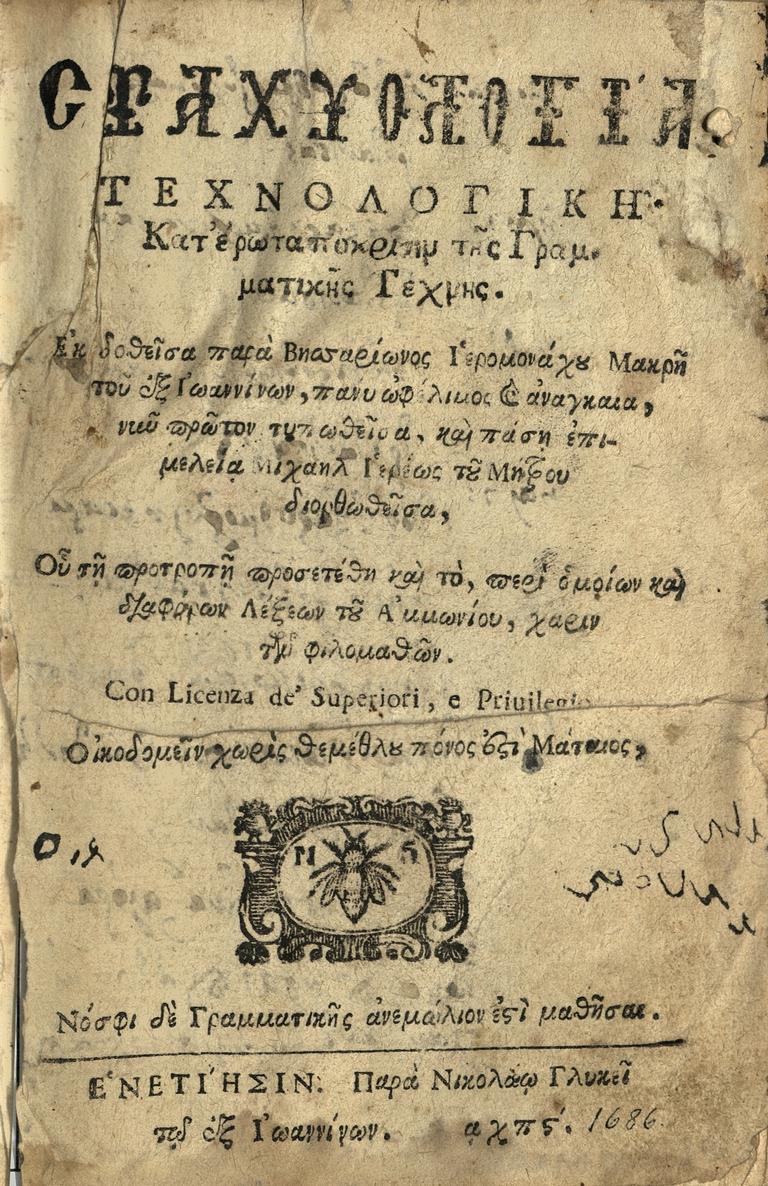 СΤΑΧΥΟΛΟΓΙΑ
ΤΕΧΝΟΛΟΓΙΚΗ·
Κατ' ἐρωταπόκρισιν τῆς Γραμ-
ματικῆς Τέχνης.
Ἐκδοθεῖσα παρὰ Βησσαρίωνος Ἱερομονάχου Μακρῆ
τοῦ ἐξ Ἰωαννίνων, πανυ ὠφέλιμος & ἀναγκαια,
νιῦ πρῶτον τυπωθεῖσα, καὶ πάσῃ ἐπι-
μελείᾳ Μιχαὴλ Ἱερέως τοῦ Μήτρου
διορθωθεῖσα,
Οὗ τῇ προτροπῇ προσετέθη καὶ τὸ, περὶ ὁμοίων καὶ
διαφόρων Λέξεων τοῦ Ἀμμωνίου, χαριν
τῶν φιλομαθῶν.
Con Licenza de' Superiori, e Priuilegio
Οἰκοδομεῖν χωρὶς θεμέθλου πόνος ἐστὶ Μάταιος,
Ν
Νόσφι δὲ Γραμματικῆς ἀνεμώλιον ἐστὶ μαθῆσαι.
ἘΝΕΤΙΉΣΙΝ. Παρὰ Νικολάῳ Γλυκεῖ
τῷ ἐξ Ἰωαννίνων. αχπϛ. 1686.